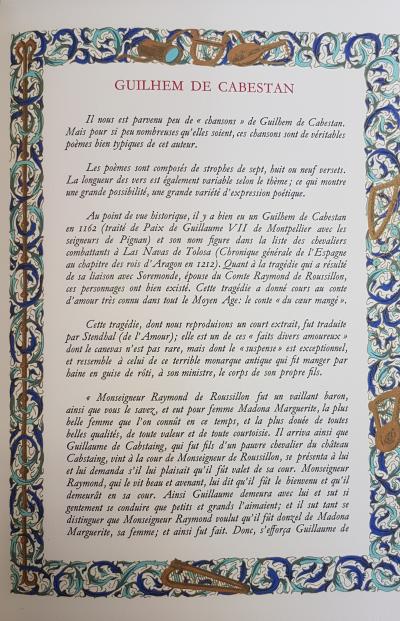 GUILHEM DE CABESTAN
Il nous est parvenu peu de « chansons » de Guilhem de Cabestan.
Mais pour si peu nombreuses qu'elles soient, ces chansons sont de véritables
poèmes bien typiques de cet auteur.
Les poèmes sont composés de strophes de sept, huit ou neuf versets.
La longueur des vers est également variable selon le thème ; ce qui montre
une grande possibilité, une grande variété d'expression poétique.
Au point de vue historique, il y a bien eu un Guilhem de Cabestan
en 1162 (traité de Paix de Guillaume VII de Montpellier avec les
seigneurs de Pignan) et son nom figure dans la liste des chevaliers
combattants à Las Navas de Tolosa (Chronique générale de l'Espagne
au chapitre des rois d'Aragon en 1212). Quant à la tragédie qui a résulté
de sa liaison avec Soremonde, épouse du Comte Raymond de Roussillon,
ces personnages ont bien existé. Cette tragédie a donné cours au conte
d'amour très connu dans tout le Moyen Age : le conte « du cœur mangé ».
Cette tragédie, dont nous reproduisons un court extrait, fut traduite
par Stendhal (de l'Amour) ; elle est un de ces « faits divers amoureux »
dont le canevas n'est pas rare, mais dont le « suspense » est exceptionnel,
et ressemble à celui de ce terrible monarque antique qui fit manger par
haine en guise de rôti, à son ministre, le corps de son propre fils.
« Monseigneur Raymond de Roussillon fut un vaillant baron,
ainsi que vous le savez, et eut pour femme Madona Marguerite, la plus
belle femme que l'on connût en ce temps, et la plus douée de toutes
belles qualités, de toute valeur et de toute courtoisie. Il arriva ainsi que
Guillaume de Cabstaing, qui fut fils d'un pauvre chevalier du château
Cabstaing, vint à la cour de Monseigneur de Roussillon, se présenta à lui
et lui demanda s'il lui plaisait qu'il fût valet de sa cour. Monseigneur
Raymond, qui le vit beau et avenant, lui dit qu'il fût le bienvenu et qu'il
demeurât en sa cour. Ainsi Guillaume demeura avec lui et sut si
gentement se conduire que petits et grands l'aimaient ; et il sut tant se
distinguer que Monseigneur Raymond voulut qu'il fût donzel de Madona
Marguerite, sa femme ; et ainsi fut fait. Donc, s'efforça Guillaume de